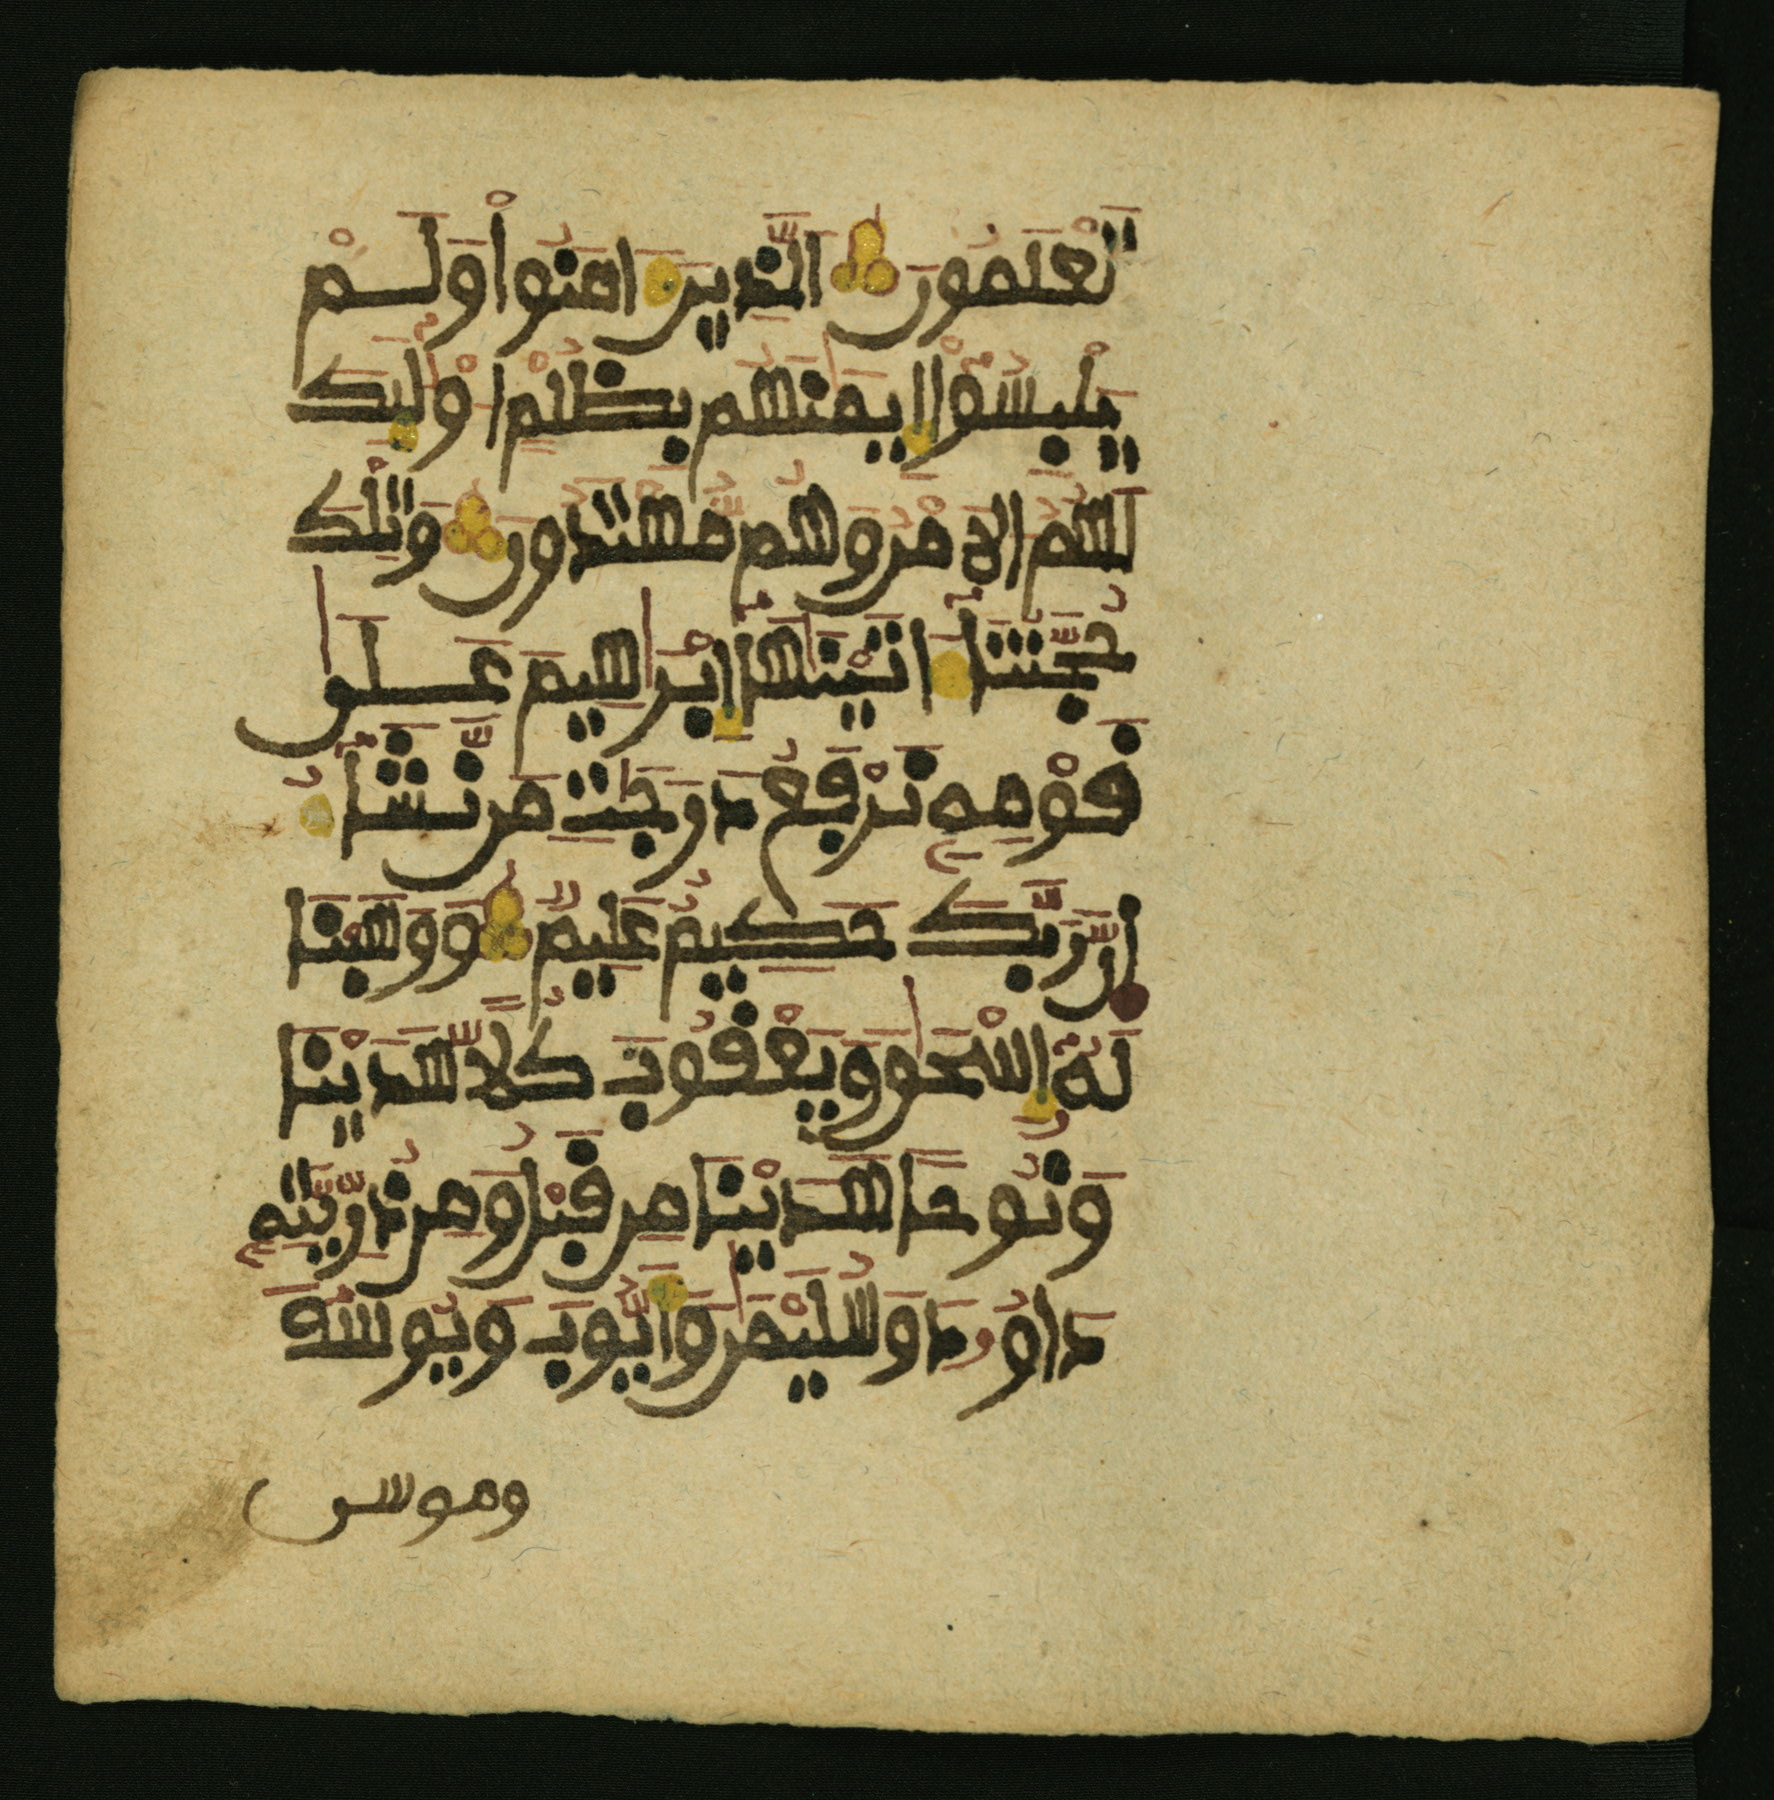 تَعْلَمُونَ الَّذِينَ ءَامَنُوا وَلَمْ
يَلْبِسُوا إِيمَٰنَهُم بِظُلْمٍ أُوْلَٰئِكَ
لَهُمُ الَامْنُ وَهُم مُّهْتَدُونَ وَتِلْكَ
حُجَّتُنَا ءَاتَيْنَٰهَا إِبْرَٰهِيمَ عَلَىٰ
قَوْمِهِ نَرْفَعُ دَرَجَٰتِ مَن نَّشَاءُ
إِنَّ رَبَّكَ حَكِيمٌ عَلِيمٌ وَوَهَبْنَا
لَهُ إِسْحَٰقَ وَيَعْقُوبَ كُلًّا هَدَيْنَا
وَنُوحًا هَدَيْنَا مِن قَبْلُ وَمِن ذُرِّيَّتِهِ
دَاوُودَ وَسُلَيْمَٰنَ وَأَيُّوبَ وَيُوسُفَ
وموسى